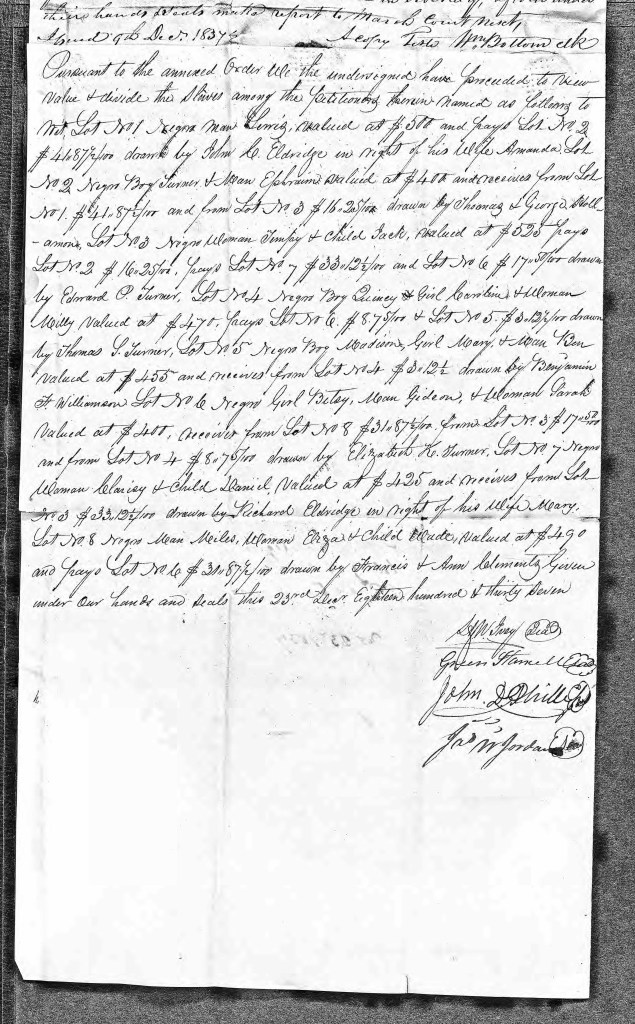 their hands & seals make report to March Court next,
Issued 9th Decr. 1837 A copy Teste Wm Bottom clk
Pursuant to the annexed Order We the undersigned have proceeded to view
value & divide the Slaves among the Petitioners therein named as follows to
wit, Lot No 1 Negro Man valued at $500 and pays Lot No. 2
$41..87½/100 drawn by John C. Eldridge in right of his Wife Amanda, Lot
No 2 Negro Boy Turner, & Man Ephraim valued at $400 and receives from Lot
No 1. $41..87½/100 and from Lot No 3 $16..25/100 drawn by Thomas & George Will-
-amson, Lot No 3 Negro Woman Tempy & Child Jack, valued at $525 pays
Lot No. 2 $16..25/100, pays Lot No 7 $33..12½/100 and Lot No 6 $17..50/100 drawn
by Edward P. Turner, Lot No 4 Negro Boy Quincy & Girl Caroline & Woman
Milly Valued at $470, pays Lot No 6, $8..75/100 & Lot No 5 $3..12½/100 drawn
by Thomas S. Turner, Lot No 5 Negro Boy Madison, Girl Mary, & Man Ben
valued at $455 and receives from Lot No 4 $3..12½ drawn by Benjamin
Williamson Lot No 6 Negro Girl Betsy, Man Gideon, & Woman Sarah
valued at $400, receives from Lot No 8 $31..87½/100, from Lot No 3 $17..50/100
and from Lot No 4 $8..75/100 drawn by Elizabeth K. Turner, Lot No 7 Negro
Woman Clarisy & Child Daniel, Valued at $425 and receives from Lot
No 3 $33.12½/100 drawn by Richard Eldridge in right of his Wife Mary,
Lot No 8 Negro Man Meiles, Woman Eliza & Child valued at $490
and pays Lot No 6 $31..87½/100 drawn by Francis & Ann Clements Given
under Our hands and seals this 23rd Decr. Eighteen hundred & thirty Seven
Ivey Seal
Green Seal
John Seal
Jas W Jordan Seal